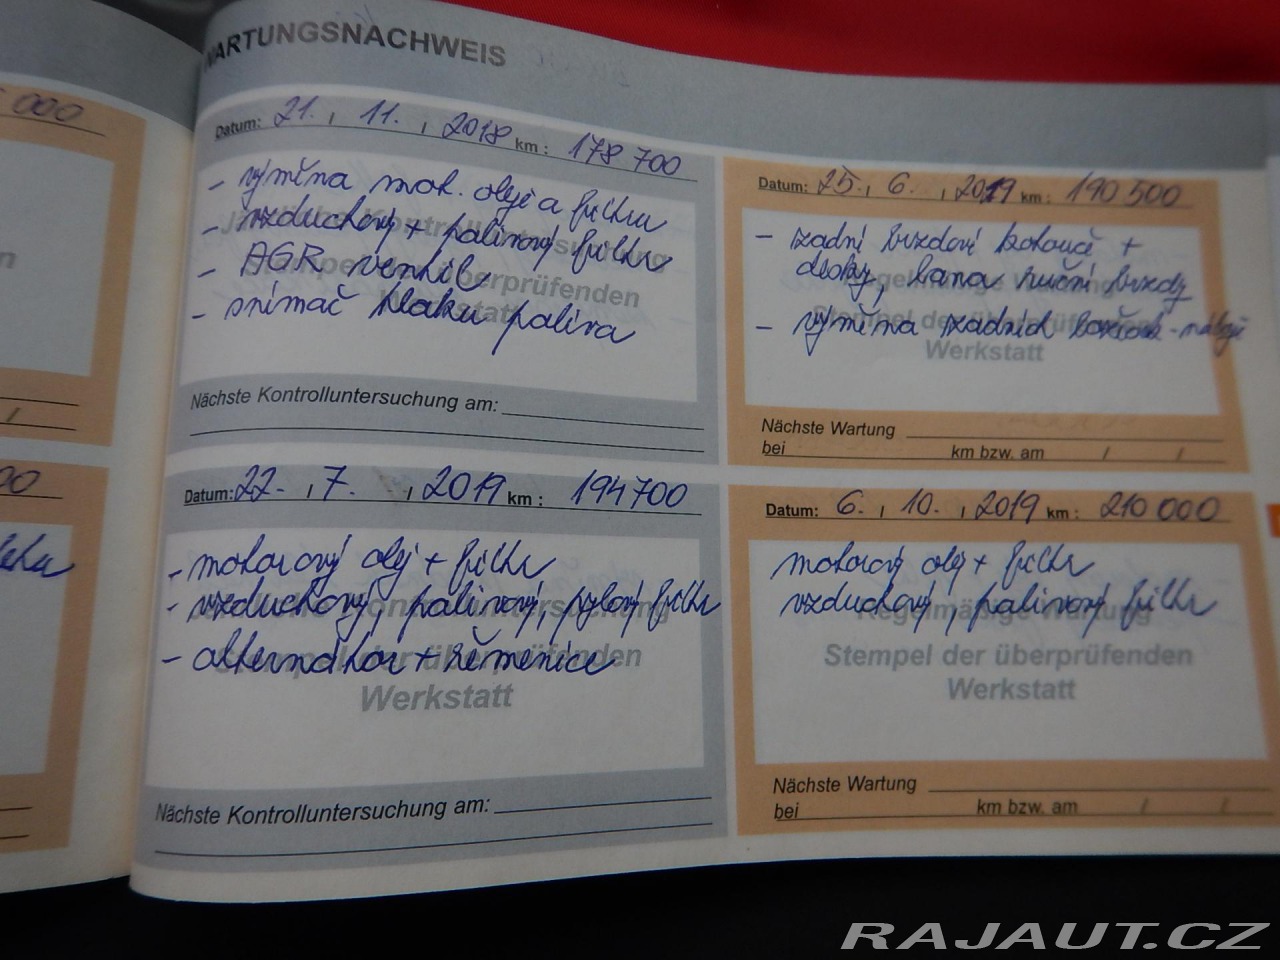 WARTUNGSNACHWEIS
000
Datum: 21. , 11. , 2018 km : 178 700
- výměna mot. oleje a filtru
- vzduchový + palivový filtr
- AGR ventil
- snímač tlaku paliva
Jährliche Kontrolluntersuchung
Stempel der überprüfenden
Werkstatt
Nächste Kontrolluntersuchung am:
Datum: 25. , 6. , 2019 km : 190 500
- zadní brzdové kotouče +
desky, lana ruční brzdy
- výměna zadních
Regelmäßige Wartung
Stempel der überprüfenden
Werkstatt
Nächste Wartung
bei km bzw. am / /
Datum: 22. , 7. , 2019 km : 194 700
- motorový olej + filtr
- vzduchový, palivový, pylový filtr
- alternátor + řemenice
Jährliche Kontrolluntersuchung
Stempel der überprüfenden
Werkstatt
Nächste Kontrolluntersuchung am:
Datum: 6. , 10. , 2019 km : 210 000
motorový olej + filtr
vzduchový, palivový filtr
Regelmäßige Wartung
Stempel der überprüfenden
Werkstatt
Nächste Wartung
bei km bzw. am / /
RAJAUT.CZ